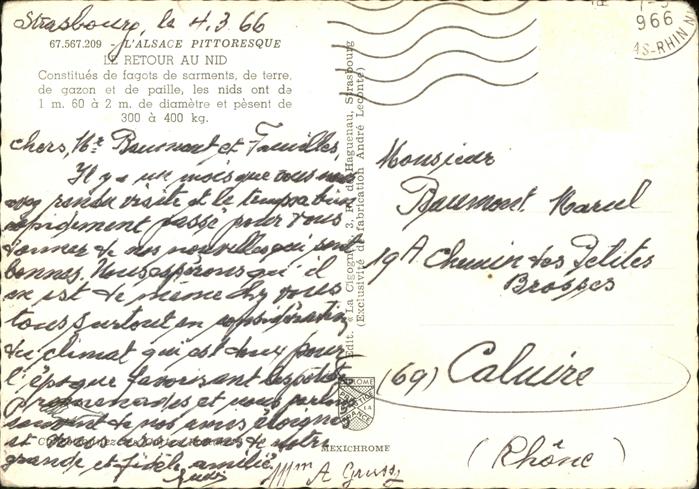 Strasbourg, le 4.3.66
67.567.209 - L'ALSACE PITTORESQUE
LE RETOUR AU NID
Constitués de fagots de sarments, de terre,
de gazon et de paille, les nids ont de
1 m. 60 à 2 m. de diamètre et pèsent de
300 à 400 kg.
Chers, Mr Baumont et Familles,
Il y a un mois que vous nous
avez rendu visite et le temps a bien
rapidement passé pour vous
donner de nos nouvelles qui sont
bonnes. Nous espérons qu'il
en est de même chez vous
tous surtout en considération
du climat qui est doux pour
l'époque favorisant les petites
promenades et nous parlons
souvent de nos amis éloignés
et vous assurons de notre
grande et fidèle amitié
Mme A Gruss
Edit. "La Cigogne", 3, Fg de Haguenau, Strasbourg
(Exclusivité de fabrication André Leconte)
MEXICHROME
966
AS-RHIN
Monsieur
Baumont Marcel
19A Chemin des Petites
Brosses
(69) Caluire
(Rhône)